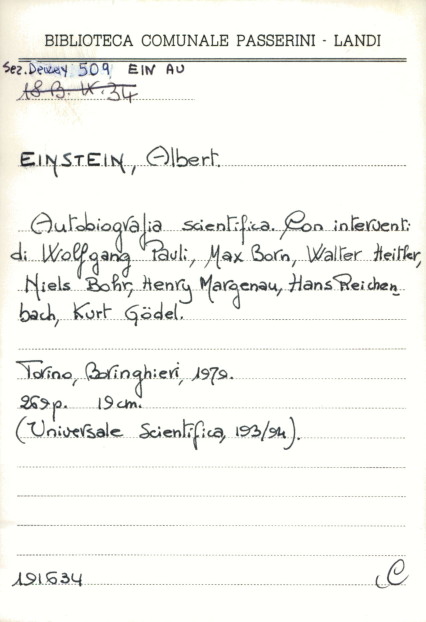 BIBLIOTECA COMUNALE PASSERINI - LANDI
Sez. Dewey 509 EIN AU
18 B. IX. 34
EINSTEIN, Albert.
Autobiografia scientifica. Con interventi
di Wolfgang Pauli, Max Born, Walter Heitler,
Niels Bohr, Henry Margenau, Hans Reichen
bach, Kurt Gödel.
Torino, Boringhieri, 1979.
269p. 19cm.
(Universale Scientifica, 193/94).
191634 C